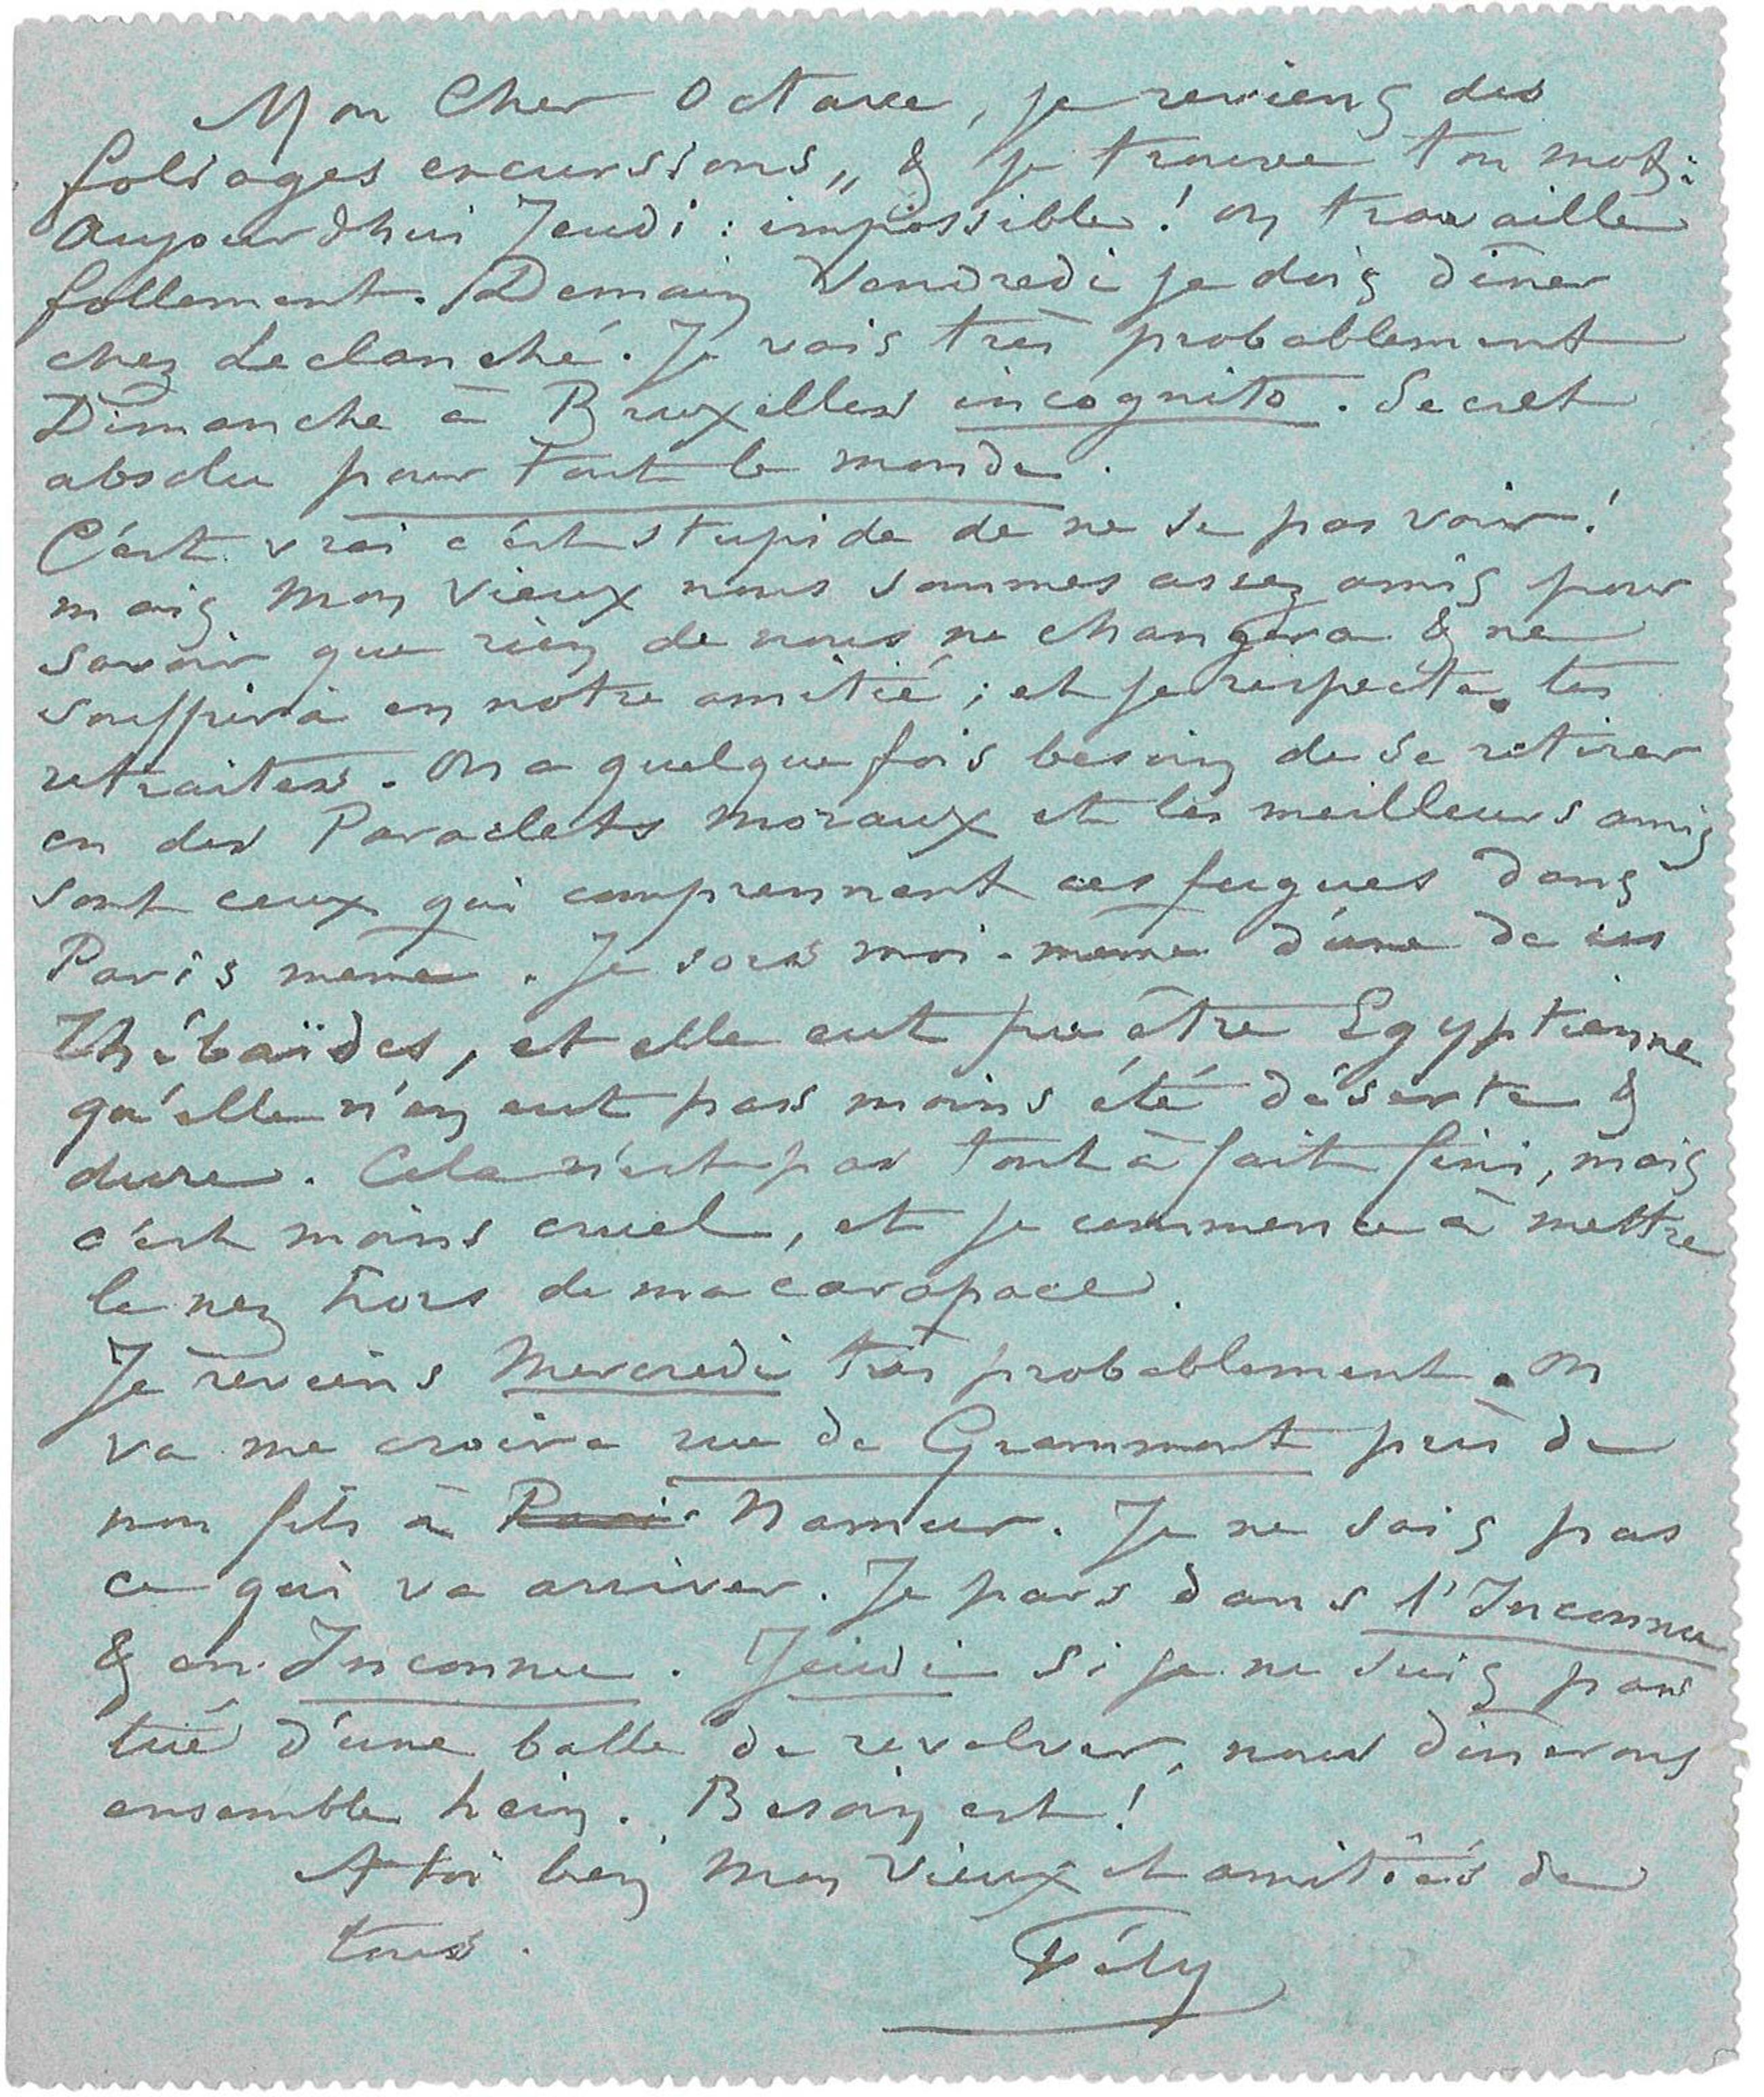 Mon Cher Octave, je reviens des
foliages excursions,, & je trouve ton mot :
Aujourdhui Jeudi : impossible ! on travaille
follement. Demain Vendredi je dois diner
chez Leclanché. Je vais très probablement
Dimanche à Bruxelles incognito. Secret
absolu pour tout le monde.
C'est vrai c'est stupide de ne se pas voir !
mais mon vieux nous sommes assez amis pour
savoir que rien de nous ne changera & ne
souffrira en notre amitié ; et je respecte tes
retraites. On a quelquefois besoin de se retirer
en des Paraclets moraux et les meilleurs amis
sont ceux qui comprennent ces fugues dans
Paris même. Je sors moi-même d'une de ces
Thébaïdes, et elle eut pu être Egyptienne
qu'elle n'en eut pas moins été déserte &
dure. Cela n'est pas tout à fait fini, mais
c'est moins cruel, et je commence à mettre
le nez hors de ma carapace.
Je reviens Mercredi très probablement. On
va me croire rue de Grammont près de
mon fils à Paris Namur. Je ne sais pas
ce qui va arriver. Je pars dans l'Inconnu
& en Inconnu. Jeudi si je ne suis pas
tué d'une balle de revolver, nous dinerons
ensemble hein. Besoin est !
A toi bien mon vieux et amitiés de
tous.
Fély